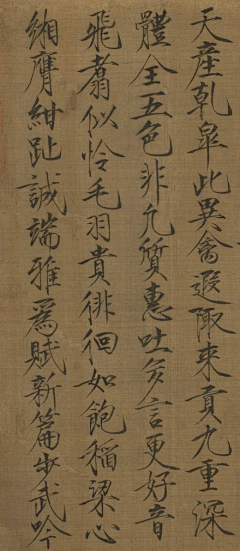 天產乾皐此異禽遐陬來貢九重深
體全五色非凡質惠吐多言更好音
飛翥似憐毛羽貴徘徊如飽稻粱心
緗膺紺趾誠端雅為賦新篇步武吟